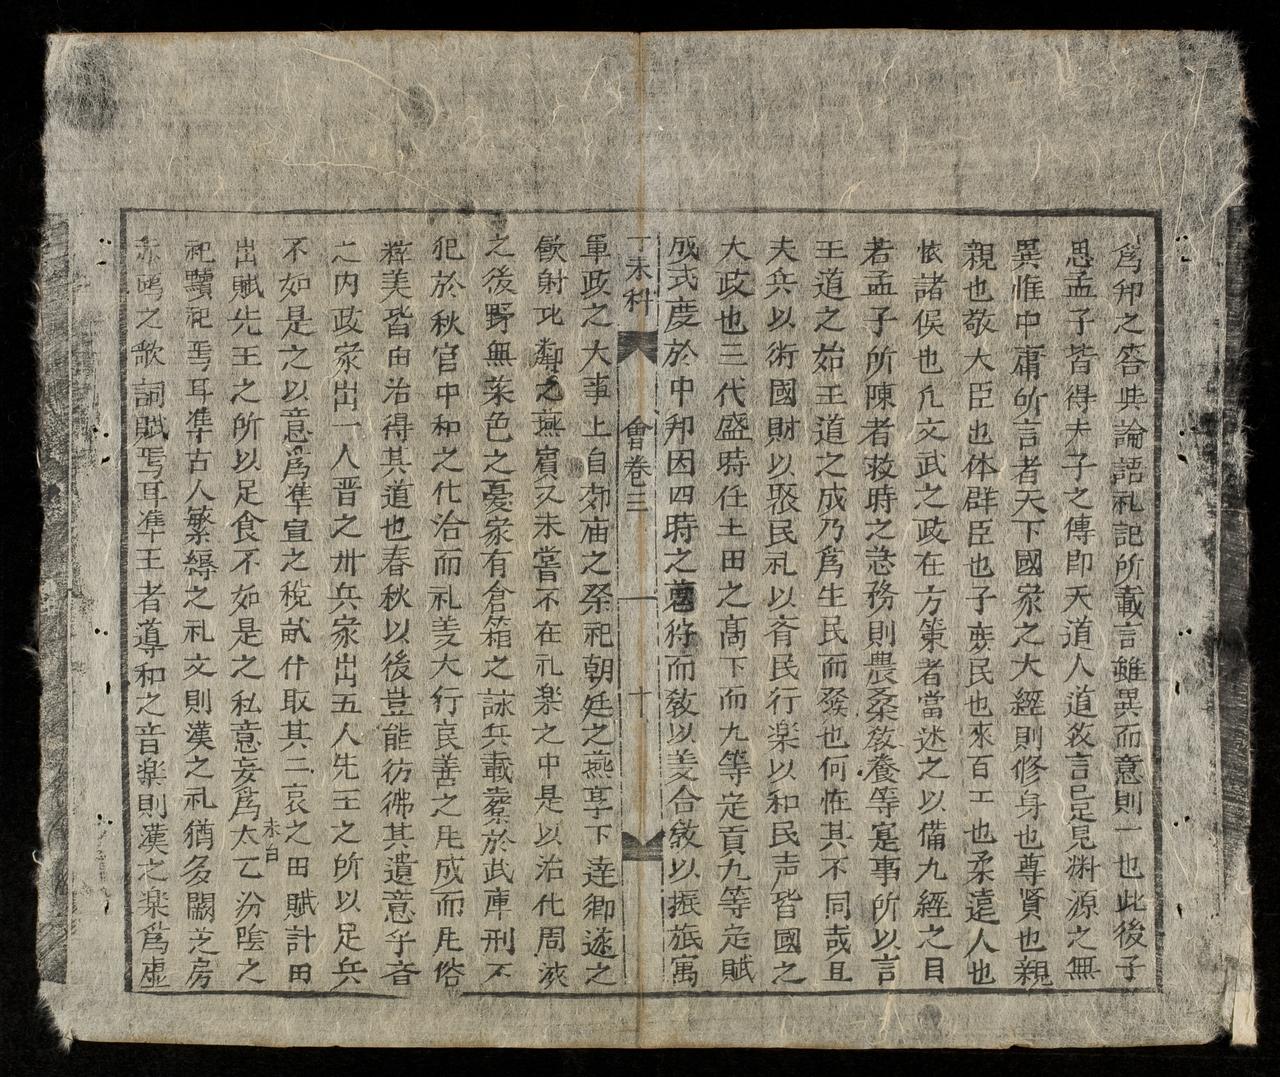 爲邦之答典論語礼記所載言雖異而意則一也此後子
思孟子皆得夫子之傳即天道人道敎言已足見淵源之無
異惟中庸所言者天下國家之大經則修身也尊賢也親
親也敬大臣也体群臣也子庶民也來百工也柔遠人也
懷諸侯也凡文武之政在方策者當述之以備九經之目
若孟子所陳者救時之急務則農桑敎養等寔事所以言
王道之始王道之成乃爲生民而發也何怪其不同哉且
夫兵以術國財以聚民礼以齊民行楽以和民声皆國之
大政也三代盛時任土田之髙下而九等定貢九等定賦
成式度於中邦因四時之蒐狩而敎以羙合敘以振旅寓
丁未科 會卷三 一 十
軍政之大事上自郊庙之祭祀朝廷之燕享下逹卿遂之
飲射比鄰之燕賓又未嘗不在礼楽之中是以治化周浹
之後野無菜色之憂家有倉箱之詠兵載櫜於武庫刑不
犯於秋官中和之化洽而礼羙大行民善之民成而民俗
粹美皆由治得其道也春秋以後豈能彷彿其遺意乎音
之内政家出一人晋之州兵家出五人先王之所以足兵
不如是之以意爲準宣之稅畝什取其二哀之田賦計田
出賦先王之所以足食不如是之私意妄爲太乙汾陰之
祀黷祀焉耳準古人繁縟之礼文則漢之礼猶多闕芝房
赤鴈之歌詞賦焉耳準王者導和之音楽則漢之楽爲虚
未白